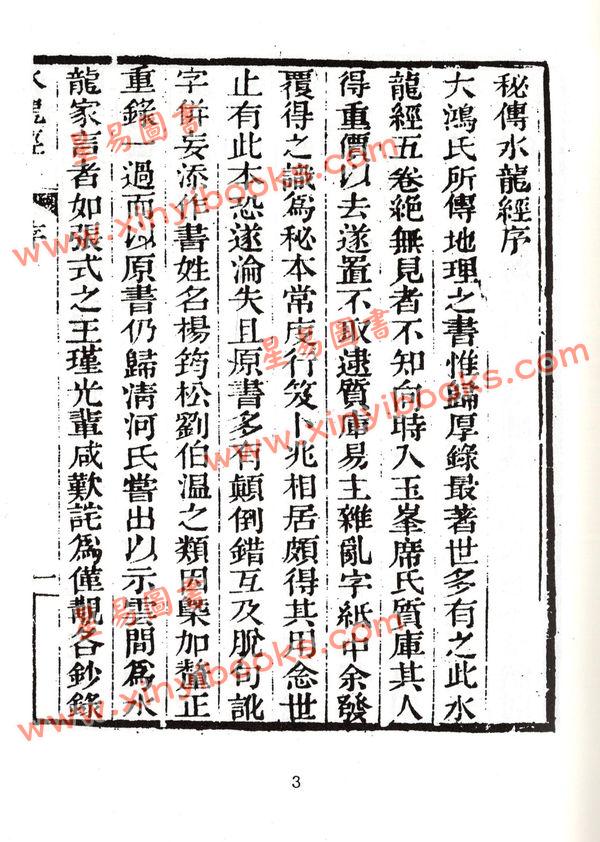 秘傳水龍經序
大鴻氏所傳地理之書惟歸厚錄最著世多有之此水
龍經五卷絶無見者不知何時入玉峯席氏質庫其人
得重價以去遂置不取逮質庫易主雜亂字紙中余發
覆得之識爲秘本常度行笈卜兆相居頗得其用念世
止有此本恐遂淪失且原書多有顛倒錯互及脫句訛
字併妄添作書姓名楊筠松劉伯溫之類因槩加釐正
重錄一過而以原書仍歸淸河氏嘗出以示雲間爲水
龍家言者如張式之王瑾光輩咸歎詫爲僅觀各鈔錄
水龍經
序
一
星易圖書
www.xinyibooks.com
星易圖書
www.xinyibooks.com
星易圖書
www.xinyibooks.com
3